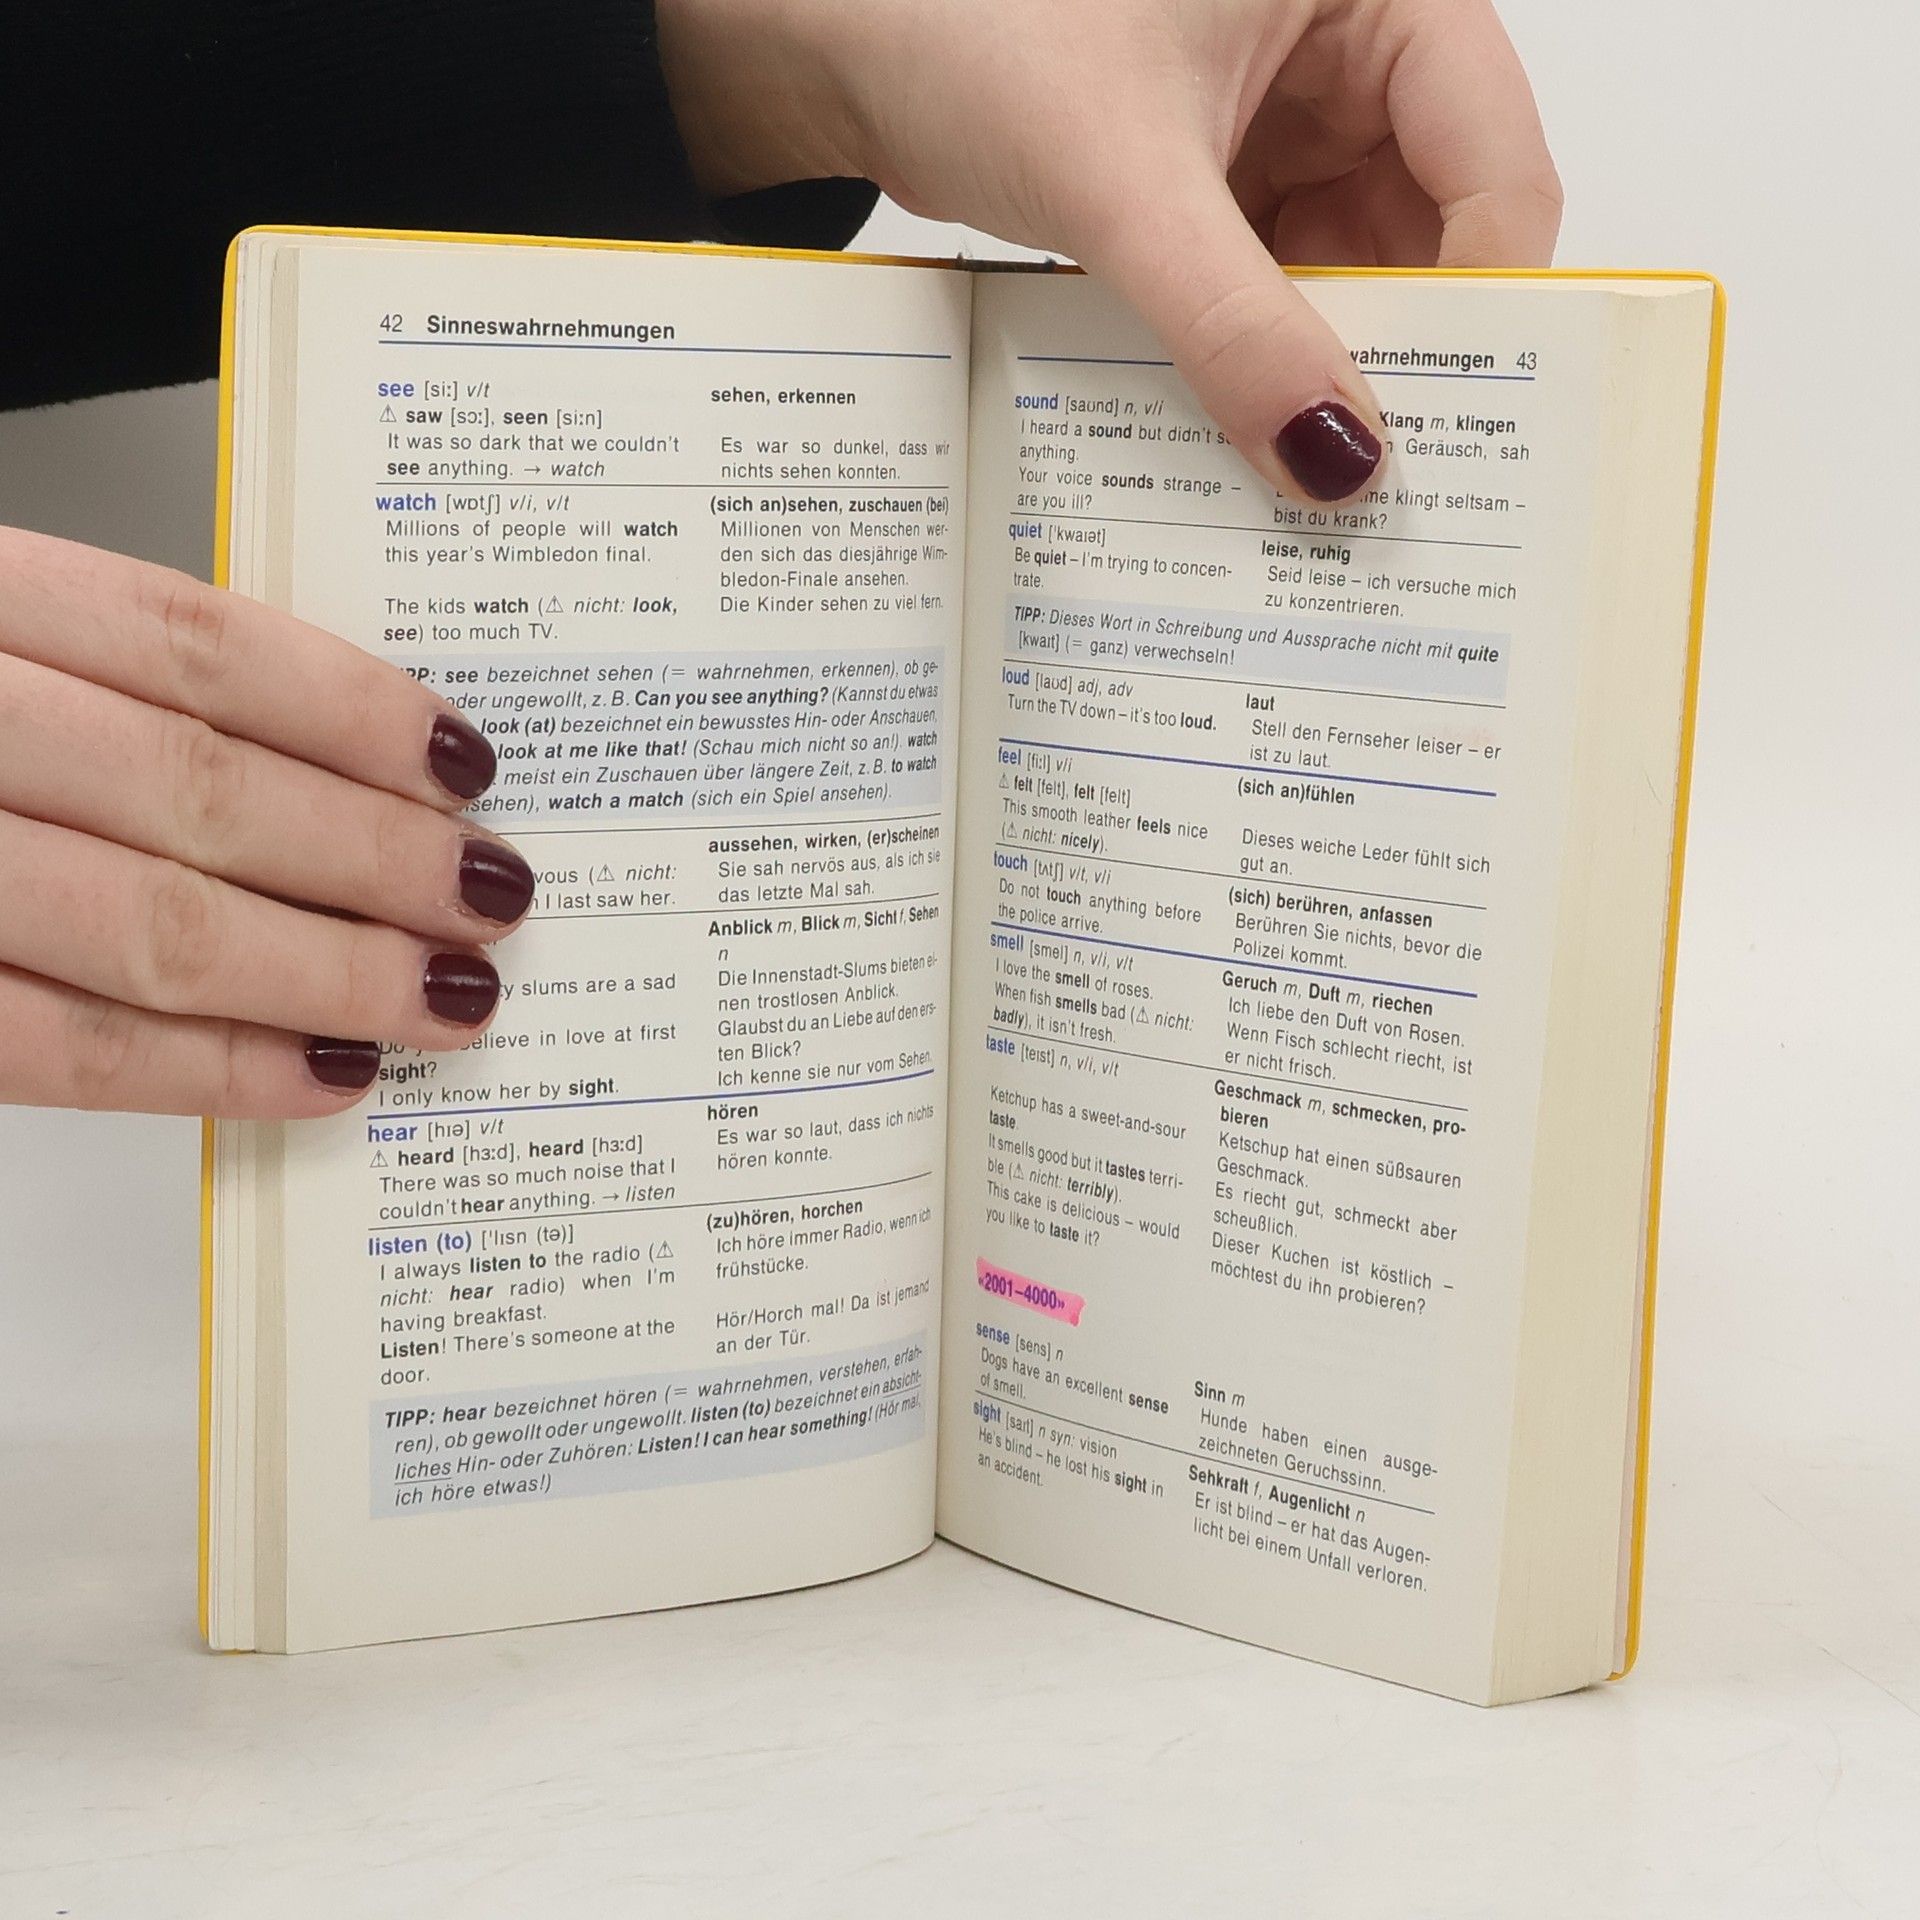 42 Sinneswahrnehmungen
see [siː] v/t
⚠ saw [sɔː], seen [siːn]
It was so dark that we couldn't
see anything. → watch
sehen, erkennen
Es war so dunkel, dass wir
nichts sehen konnten.
watch [wɒtʃ] v/i, v/t
Millions of people will watch
this year's Wimbledon final.
The kids watch (⚠ nicht: look,
see) too much TV.
(sich an)sehen, zuschauen (bei)
Millionen von Menschen wer-
den sich das diesjährige Wim-
bledon-Finale ansehen.
Die Kinder sehen zu viel fern.
see bezeichnet sehen (= wahrnehmen, erkennen), ob ge-
oder ungewollt, z. B. Can you see anything? (Kannst du etwas
look (at) bezeichnet ein bewusstes Hin- oder Anschauen,
look at me like that! (Schau mich nicht so an!). watch
meist ein Zuschauen über längere Zeit, z. B. to watch
watch a match (sich ein Spiel ansehen).
(⚠ nicht:
I last saw her.
aussehen, wirken, (er)scheinen
Sie sah nervös aus, als ich sie
das letzte Mal sah.
slums are a sad
in love at first
sight?
I only know her by sight.
Anblick m, Blick m, Sicht f, Sehen
n
Die Innenstadt-Slums bieten ei-
nen trostlosen Anblick.
Glaubst du an Liebe auf den ers-
ten Blick?
Ich kenne sie nur vom Sehen.
hear [hɪə] v/t
⚠ heard [hɜːd], heard [hɜːd]
There was so much noise that I
couldn't hear anything. → listen
hören
Es war so laut, dass ich nichts
hören konnte.
listen (to) ['lɪsn (tə)]
I always listen to the radio (⚠
nicht: hear radio) when I'm
having breakfast.
Listen! There's someone at the
door.
(zu)hören, horchen
Ich höre immer Radio, wenn ich
frühstücke.
Hör/Horch mal! Da ist jemand
an der Tür.
TIPP: hear bezeichnet hören (= wahrnehmen, verstehen, erfah-
ren), ob gewollt oder ungewollt. listen (to) bezeichnet ein absicht-
liches Hin- oder Zuhören: Listen! I can hear something! (Hör mal,
ich höre etwas!)
43
sound [saʊnd] n, v/i
I heard a sound but didn't
anything.
Your voice sounds strange –
are you ill?
Klang m, klingen
Geräusch, sah
klingt seltsam –
bist du krank?
quiet ['kwaɪət]
Be quiet – I'm trying to concen-
trate.
leise, ruhig
Seid leise – ich versuche mich
zu konzentrieren.
TIPP: Dieses Wort in Schreibung und Aussprache nicht mit quite
[kwaɪt] (= ganz) verwechseln!
loud [laʊd] adj, adv
Turn the TV down – it's too loud.
laut
Stell den Fernseher leiser – er
ist zu laut.
feel [fiːl] v/i
⚠ felt [felt], felt [felt]
This smooth leather feels nice
(⚠ nicht: nicely).
(sich an)fühlen
Dieses weiche Leder fühlt sich
gut an.
touch [tʌtʃ] v/t, v/i
Do not touch anything before
the police arrive.
(sich) berühren, anfassen
Berühren Sie nichts, bevor die
Polizei kommt.
smell [smel] n, v/i, v/t
I love the smell of roses.
When fish smells bad (⚠ nicht:
badly), it isn't fresh.
Geruch m, Duft m, riechen
Ich liebe den Duft von Rosen.
Wenn Fisch schlecht riecht, ist
er nicht frisch.
taste [teɪst] n, v/i, v/t
Ketchup has a sweet-and-sour
taste.
It smells good but it tastes terri-
ble (⚠ nicht: terribly).
This cake is delicious – would
you like to taste it?
Geschmack m, schmecken, pro-
bieren
Ketschup hat einen süßsauren
Geschmack.
Es riecht gut, schmeckt aber
scheußlich.
Dieser Kuchen ist köstlich –
möchtest du ihn probieren?
«2001–4000»
sense [sens] n
Dogs have an excellent sense
of smell.
Sinn m
Hunde haben einen ausge-
zeichneten Geruchssinn.
sight [saɪt] n syn: vision
He's blind – he lost his sight in
an accident.
Sehkraft f, Augenlicht n
Er ist blind – er hat das Augen-
licht bei einem Unfall verloren.